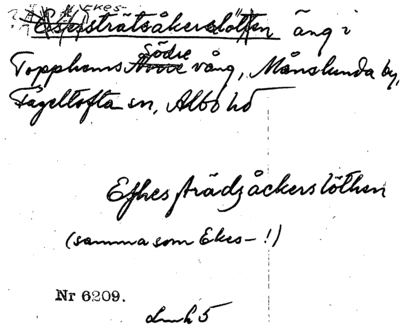 Ekes-
Espesträtsåkerslötten äng i
Topphems Norre Södre vång, Månslunda by,
Fågeltofta sn, Albo hd
Efhesträdzåckerslöthen
(samma som Ekes-!)
Nr 6209.